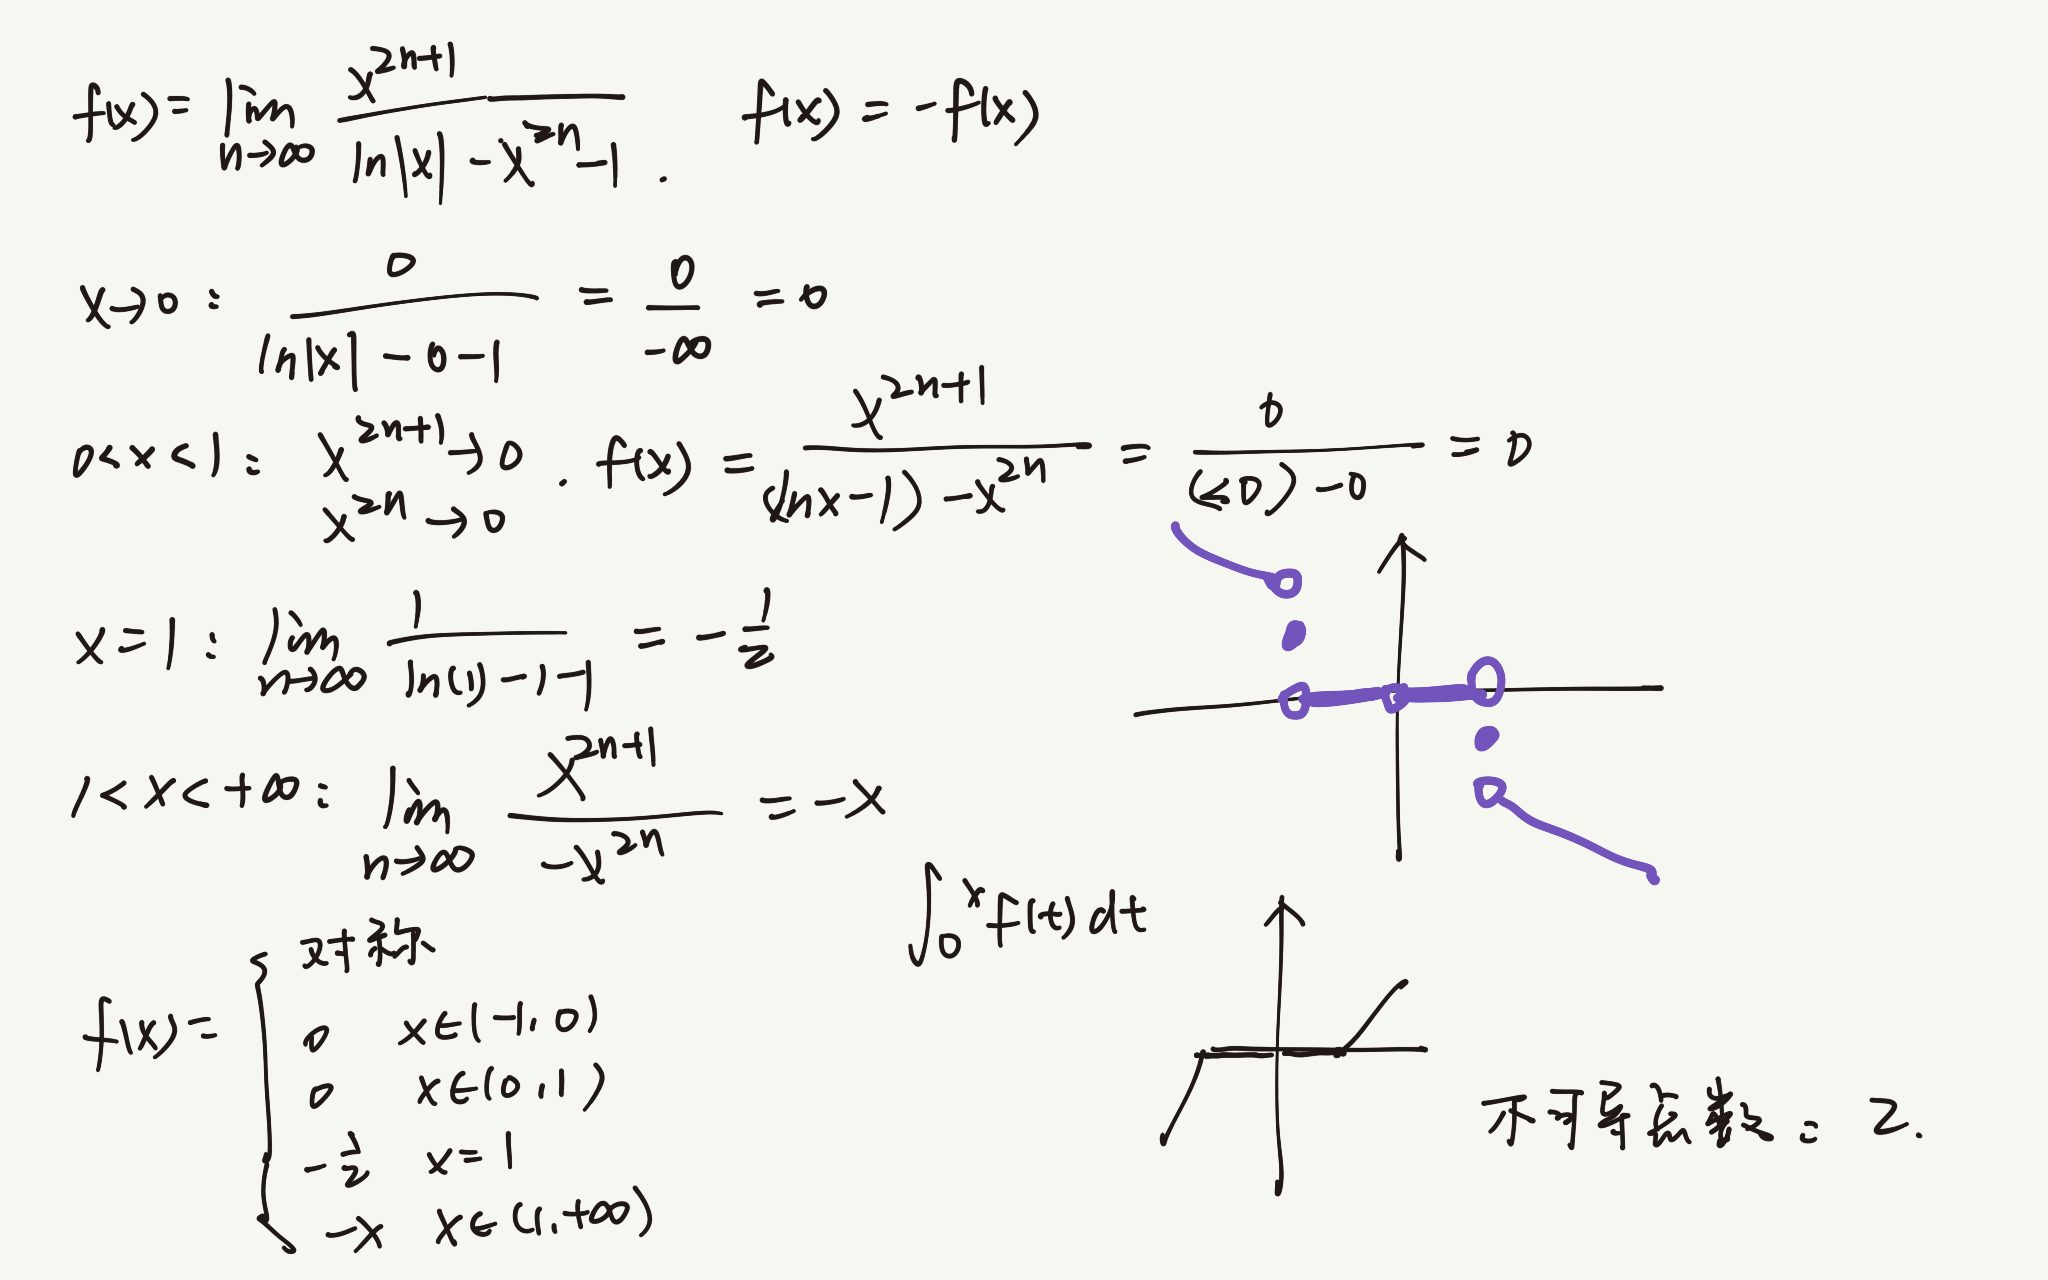 f(x) = lim n→∞ x^{2n+1} / (ln|x| - x^{2n} - 1) . f(x) = -f(x)
x→0 : 0 / (ln|x| - 0 - 1) = 0 / -∞ = 0
0 < x < 1 : x^{2n+1} → 0 . f(x) = x^{2n+1} / ((ln x - 1) - x^{2n}) = 0 / ((≤0) - 0) = 0
x^{2n} → 0
x = 1 : lim n→∞ 1 / (ln(1) - 1 - 1) = - 1/2
1 < x < +∞ : lim n→∞ x^{2n+1} / -x^{2n} = -x
∫_0^x f(t) dt
f(x) = { 对称
0 x∈(-1, 0)
0 x∈(0, 1)
- 1/2 x = 1
-x x∈(1, +∞)
不可导点数 = 2.